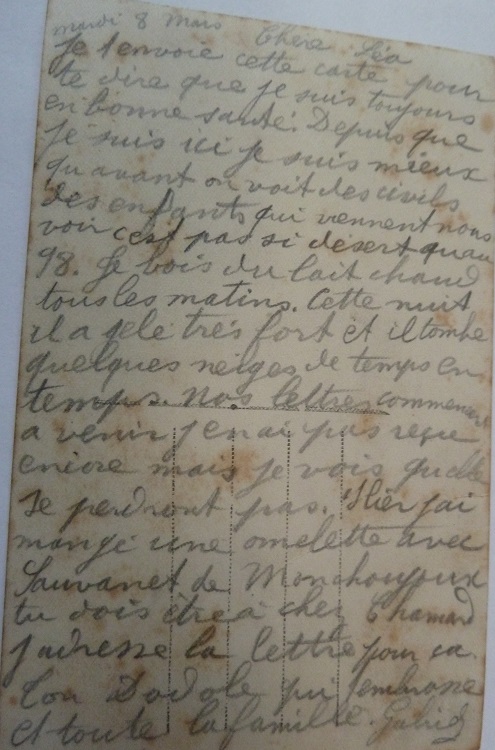 mardi 8 mars Chère Léa
Je t envoie cette carte pour
te dire que je suis toujours
en bonne santé. Depuis que
je suis ici je suis mieux
qu avant on voit des civils
des enfants qui viennent nous
voir c'est pas si désert quau
98. Je bois du lait chaud
tous les matins. Cette nuit
il a gelé très fort et il tombe
quelques neiges de temps en
temps. Nos lettres commencent
a venir j en ai pas reçu
encore mais je vois quelle
se perdront pas. Hier j'ai
mangé une omelette avec
Sauvanet de
tu dois être à chez Chamard
j adresse la lettre pour ca.
Ton qui t embrasse
et toute la famille. Gabriel